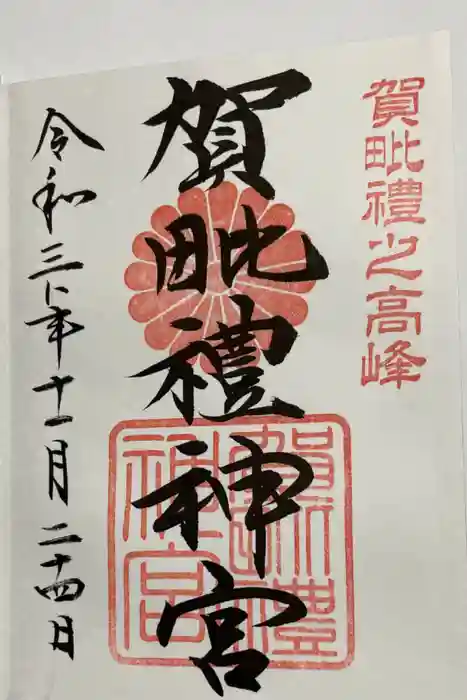 賀毗禮之高峰
賀毗禮神宮
賀毗禮
神宮
令和三年十一月二十四日